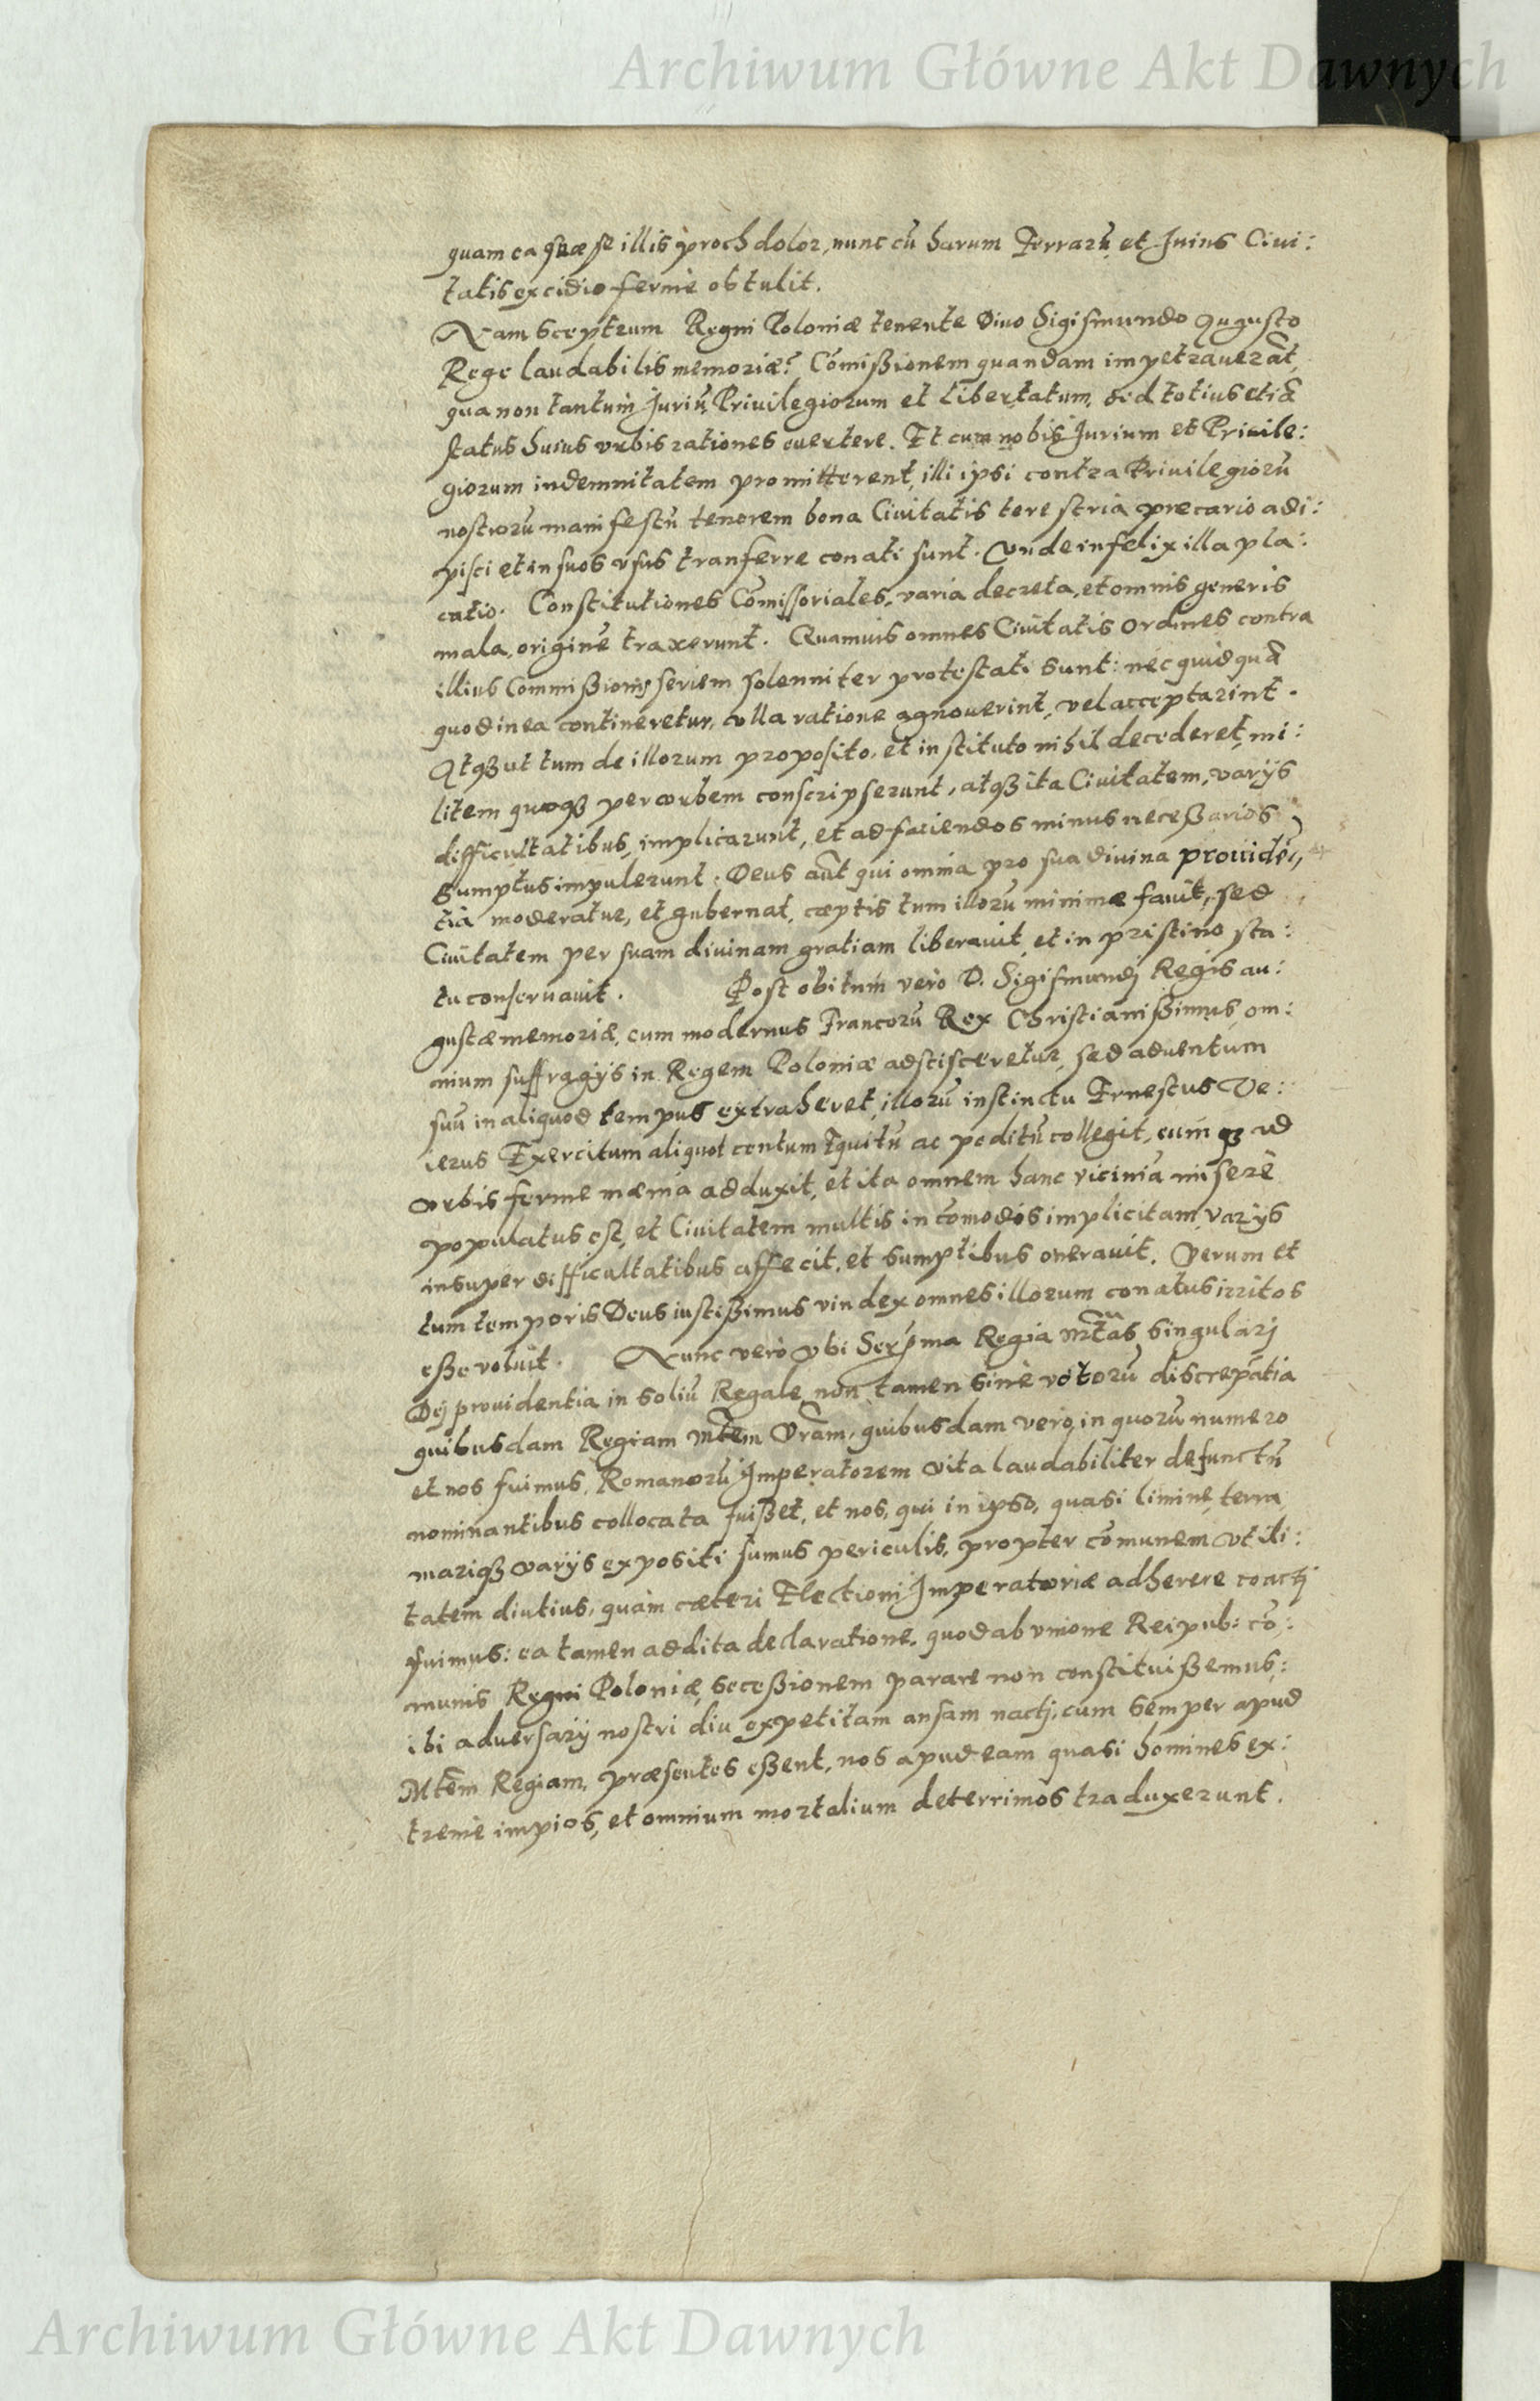 Archiwum Główne Akt Dawnych
quam ea quæ se illis proch dolor, nunc cū harum Terrarū et huius Ciui:
tatis excidio ferme obtulit.
Nam sceptrum Regni Poloniæ tenente Diuo Sigismundo Augusto
Rege laudabilis memoriæ? Cōmißionem quandam impetrauerāt,
qua non tantum Juriū, Priuilegiorum et Libertatum, sed totius etiā
status huius vrbis rationes euertere. Et cum nobis Jurium et Priuile:
giorum indemnitatem promitterent, illi ipsi contra Priuilegiorū
nostrorū manifestū tenorem bona Ciuitatis terestria precario adi:
pisci et in suos vsus tranferre conati sunt. Vnde infelix illa pla:
catio. Constitutiones Cōmissoriales, varia decreta, et omnis generis
mala, originē traxerunt. Quamuis omnes Ciuitatis Ordines contra
illius Commißionis seriem solenniter protestati sunt: nec quidquā
quod in ea contineretur, vlla ratione agnouerint, vel acceptarint.
Atqꝫ ut tum de illorum proposito, et instituto nihil decederet, mi:
litem quoqꝫ per orbem conscripserunt, atqꝫ ita Ciuitatem, varijs
difficultatibus, implicarunt, et ad faciendos minus neceßarios
sumptus impulerunt. Deus aūt qui omnia pro sua diuina prouidē,,
tia moderatur, et gubernat, cæptis tum illorū minimæ fauit, sed
Ciuitatem per suam diuinam gratiam liberauit, et in pristino sta:
tu conseruauit. Post obitum vero D. Sigismundj Regis au:
gustæ memoriæ, cum modernus Francorū Rex Christianißimus, om:
nium suffragijs in Regem Poloniæ adscisceretur, sed aduentum
suū in aliquod tempus extraheret, illorū instinctu Ernestus We:
ierus Exercitum aliquot centum Equitū ac peditū collegit, eumqꝫ ad
vrbis ferme mænia adduxit, et ita omnem hanc viciniā miserè
populatus est, et Ciuitatem multis incōmodis implicitam, varijs
insuper difficultatibus affecit, et sumptibus onerauit. Verum et
tum temporis Deus iustißimus vindex omnes illorum conatus irritos
eße voluit. Nunc vero vbi Serma Regia Mtas singularj
Dej prouidentia in soliū Regale non tamen sine votorū discrepātia
quibusdam Regiam Mtem Vram, quibusdam vero, in quorū numero
et nos fuimus, Romanorū Imperatorem vita laudabiliter defunctū
nominantibus collocata fuißet, et nos, qui in ipso, quasi limine, terra
mariqꝫ varijs expositi sumus periculis, propter cōmunem vtili:
tatem diutius, quàm cæteri Electioni Imperatoriæ adherere coactj
fuimus: ea tamen addita declaratione, quod ab vnione Reipub: cō:
munis Regni Poloniæ, seceßionem parare non constituißemus:
ibi aduersarij nostri diu expetitam ansam nactj, cum semper apud
Mtem Regiam, præsentes eßent, nos apud eam quasi homines ex:
tremè impios, et omnium mortalium deterrimos traduxerunt.
Archiwum Główne Akt Dawnych